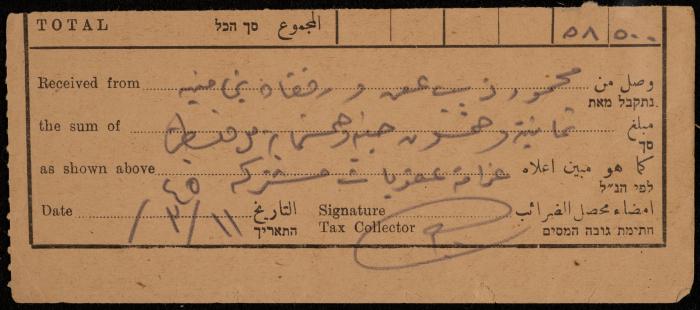 TOTAL סך הכל المجموع ٥٨ ٥٠٠
Received from محمود ورفقاه وصل من
נתקבל מאת
the sum of ثمانية وخمسون جنيه وخمسماية مبلغ
סך
as shown above غرامة عقوبات مشتركة كما هو مبين اعلاه
לפי הנ״ל
Date ١١/٣/٤٥ التاريخ Signature امضاء محصل الضرائب
התאריך Tax Collector חתימת גובה המסים